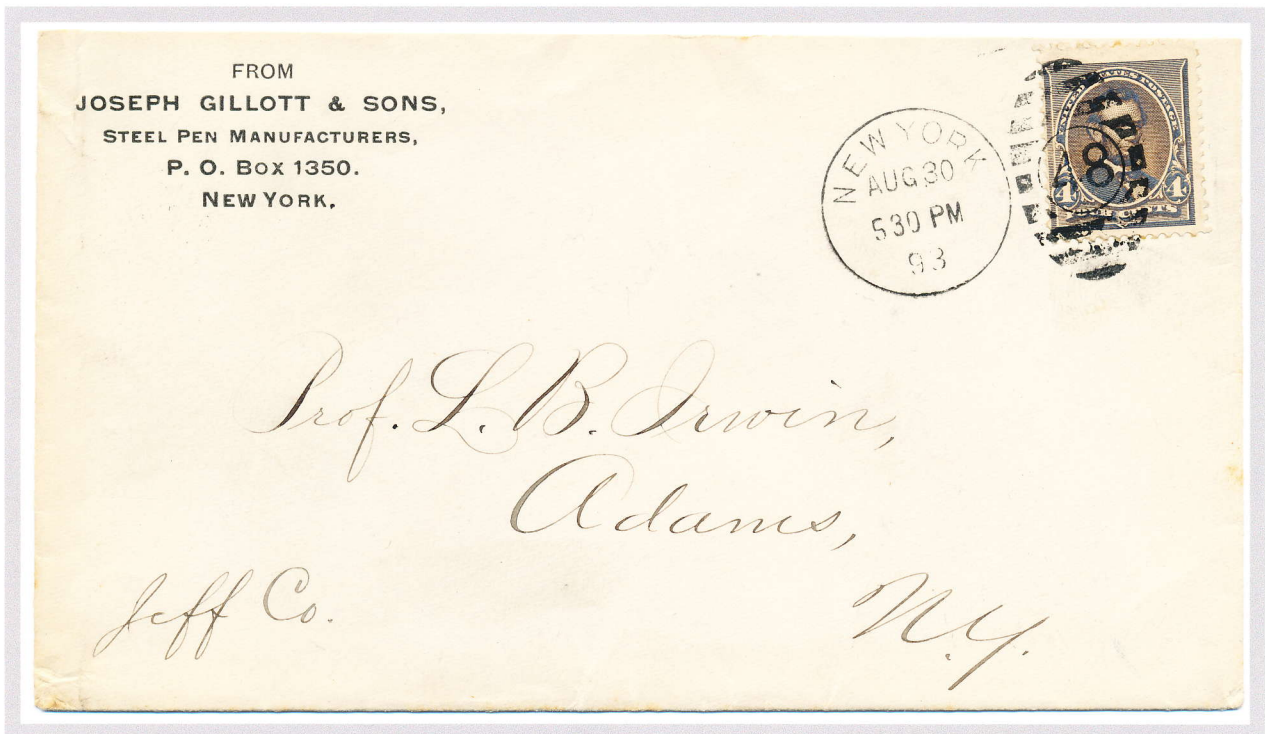 FROM
JOSEPH GILLOTT & SONS,
STEEL PEN MANUFACTURERS,
P. O. BOX 1350.
NEW YORK.
NEW YORK
AUG 30
530 PM
93
UNITED STATES POSTAGE
8
4 4
CENTS
Prof. L. B. Irwin,
Adams,
Jeff Co.
N.Y.